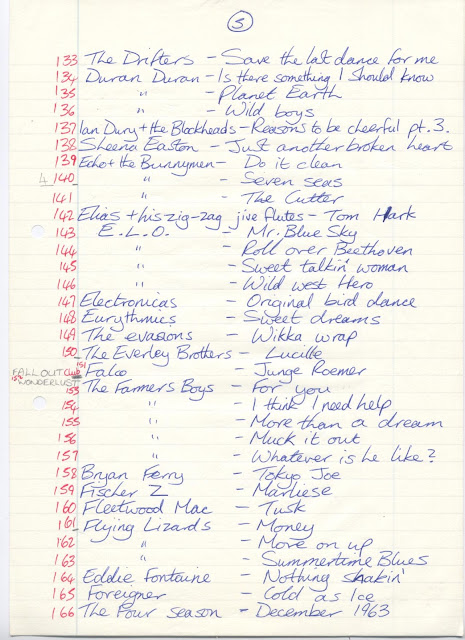 5
133 The Drifters - Save the last dance for me
134 Duran Duran - Is there something I should know
135 " - Planet Earth
136 " - Wild boys
137 Ian Dury + the Blockheads - Reasons to be cheerful pt. 3.
138 Sheena Easton - Just another broken heart
139 Echo + the Bunnymen - Do it clean
4 140 " - Seven seas
141 " - The Cutter
142 Elias + his zig-zag jive flutes - Tom Hark
143 E.L.O. - Mr. Blue Sky
144 " - Roll over Beethoven
145 " - Sweet talkin' woman
146 " - Wild west Hero
147 Electronicas - Original bird dance
148 Eurythmics - Sweet dreams
149 The evasions - Wikka wrap
150 The Everley Brothers - Lucille
FALL OUT CLUB 151 Falco - Junge Roemer
152 WONDERLUST
153 The Farmers Boys - For you
154 " - I think I need help
155 " - More than a dream
156 " - Muck it out
157 " - Whatever is he like?
158 Bryan Ferry - Tokyo Joe
159 Fischer Z - Marliese
160 Fleetwood Mac - Tusk
161 Flying Lizards - Money
162 " - Move on up
163 " - Summertime Blues
164 Eddie Fontaine - Nothing shakin'
165 Foreigner - Cold as Ice
166 The Four season - December 1963